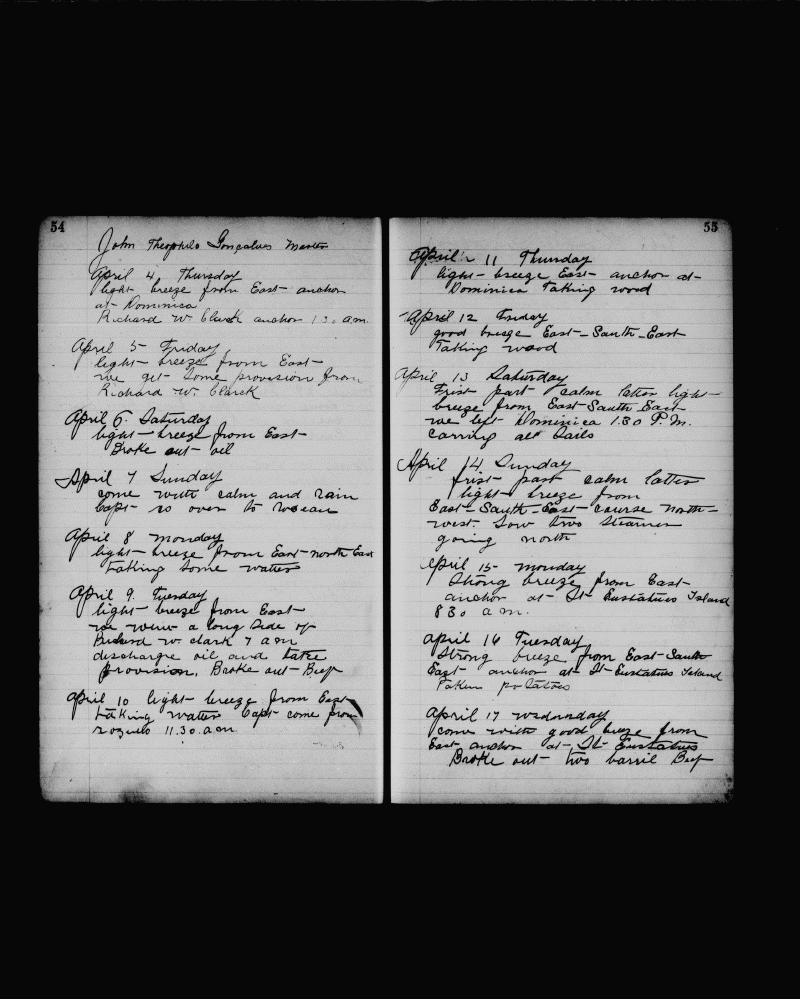 54
John Theophilo Gonsalves Master
April 4 Thursday
light breeze from East anchor
at Dominica
Richard W Clarck anchor 1 30 a.m.
April 5 Friday
light breeze from East
we get some provision from
Richard W. Clarck
April 6. Saturday
light breeze from East
Broke out oil
April 7 Sunday
come with calm and rain
Capt over to
April 8 monday
light breeze from East north East
taking some watter
April 9. Tuesday
light breeze from East
we a long side of
Richard W. Clark 7 a m
discharge oil and take
provision. Broke out Beef
April 10 light breeze from East
taking watter Capt come from
11.30. a.m.
55
April 11 Thursday
light breeze East anchor at
Dominica Taking wood
April 12 Friday
good breege East-South-East
Taking wood
April 13 Saturday
Frist part calm latter light
breeze from East South East
we left Dominica 1.30 P.M.
carring all Sails
April 14 Sunday
frist part calm latter
light breeze from
East-South-East course north-
west. Sow two Steamer
going north
April 15 monday
Strong breeze from East
anchor at St Eustatius Island
8 30 a m.
April 16 Tuesday
Strong breeze from East-South
East anchor at St Eustatius Island
Taken potatoes
April 17 wednesday
come with good breeze from
East anchor at St Eustatius
Broke out two barril Beef